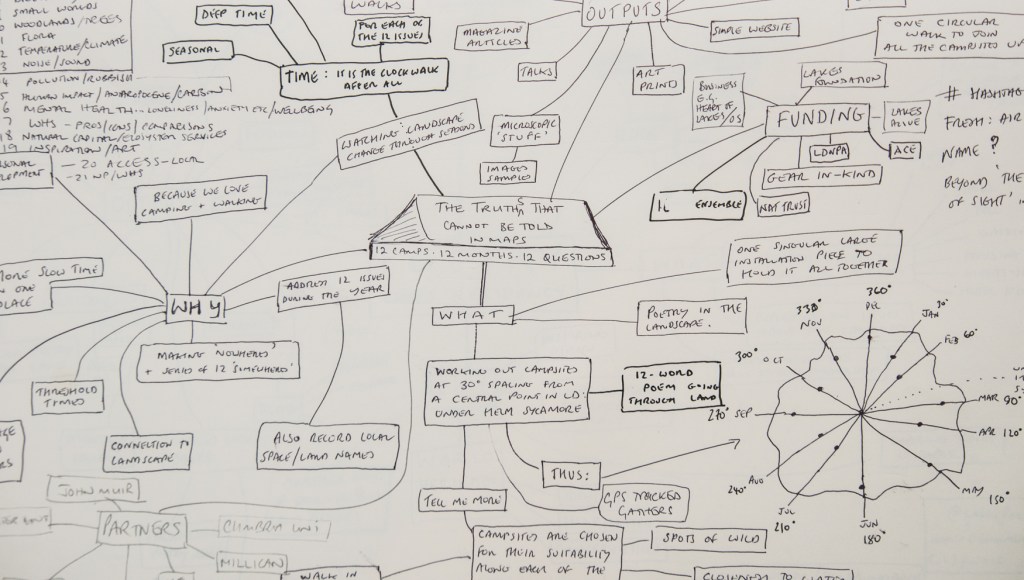 SMALL WORLDS
WOODLANDS/TREES
FLORA
TEMPERATURE/CLIMATE
NOISE/SOUND
POLLUTION/RUBBISH
HUMAN IMPACT/ANTHROPOCENE/CARBON
MENTAL HEALTH... LONELINESS/ANXIETY ETC/WELLBEING
WHS - PROS/CONS/COMPARISONS
18 NATURAL CAPITAL/ECOSYSTEM SERVICES
19 INSPIRATION/ART
- 20 ACCESS-LOCAL
- 21 NP/WHS
DEEP TIME
SEASONAL
WALKS
FOR EACH OF
THE 12 ISSUES
TIME: IT IS THE CLOCK WALK
AFTER ALL
MAGAZINE
ARTICLES
TALKS
OUTPUTS
ART
PRINT
SIMPLE WEBSITE
ONE CIRCULAR
WALK TO JOIN
ALL THE CAMPSITES UP
WATCHING LANDSCAPE
CHANGE THROUGH SEASONS
MICROSCOPIC
'STUFF'
IMAGES
SAMPLES
BUSINESS
E.G.
HEART OF
LAKES/OS
LAKES
FOUNDATION
FUNDING
LAKES
ALIVE
LDNPA
ACE
GEAR IN-KIND
NAT TRUST
ENSEMBLE
# HASHTAG
FRESH: AIR
NAME?
BEYOND 'THE
OF SIGHT'
BECAUSE WE LOVE
CAMPING + WALKING
THE TRUTHS THAT
CANNOT BE TOLD
IN MAPS
12 CAMPS. 12 MONTHS. 12 QUESTIONS
MORE SLOW TIME
IN ONE
PLACE
WHY
ADDRESS 12 ISSUES
DURING THE YEAR
WHAT
ONE SINGULAR LARGE
INSTALLATION PIECE TO
HOLD IT ALL TOGETHER
POETRY IN THE
LANDSCAPE.
MAKING 'NOWHERES'
+ SERIES OF 12 'SOMEWHERES'
THRESHOLD
TIMES
CONNECTION TO
LANDSCAPE
ALSO RECORD LOCAL
SPACE/LAND NAMES
WORKING OUT CAMPSITES
AT 30° SPACING FROM
A CENTRAL POINT IN LD:
UNDER HELM SYCAMORE
12-WORD
POEM GOING
THROUGH LAND
THUS:
GPS TRACKED
GATHERS
TELL ME MORE
CAMPSITES ARE CHOSEN
FOR THEIR SUITABILITY
ALONG EACH OF THE
SPOTS OF WILD
CLOSENESS TO
JOHN MUIR
PARTNERS
CUMBRIA UNI
MILLICAN
WALK IN
360°
DEC
30°
JAN
FEB 60°
MAR 90°
APR 120°
MAY 150°
JUN
180°
JUL
210°
AUG
240°
270° SEP
300° OCT
330°
NOV